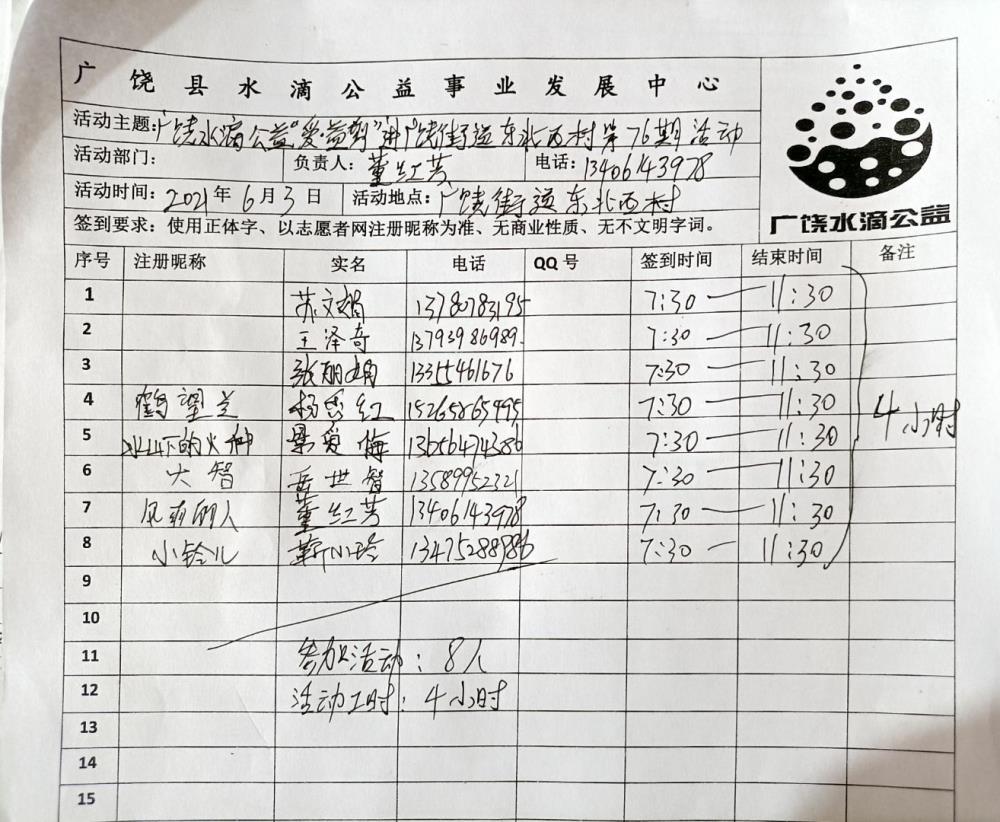 广饶县水滴公益事业发展中心
活动主题:广饶水滴公益“爱·益剪”进广饶街道东北西村第76期活动
活动部门: 负责人: 董红芳 电话: 13406143978
活动时间: 2021年6月3日 活动地点: 广饶街道东北西村
签到要求: 使用正体字、以志愿者网注册昵称为准、无商业性质、无不文明字词。
广饶水滴公益
序号 注册昵称 实名 电话 QQ号 签到时间 结束时间 备注
1 苏文娟 13780783195 7:30 — 11:30
2 王泽奇 13793986989 7:30 — 11:30
3 张丽娟 13355461676 7:30 — 11:30
4 鹤望兰 杨秀红 15265865995 7:30 — 11:30 4小时
5 冰山下的火种 梁爱梅 13656474386 7:30 — 11:30
6 大智 岳世智 13589952321 7:30 — 11:30
7 风雨的人 董红芳 13406143978 7:30 — 11:30
8 小铃儿 靳小玲 13475288986 7:30 — 11:30
9
10
11 参加活动: 8人
12 活动工时: 4小时
13
14
15